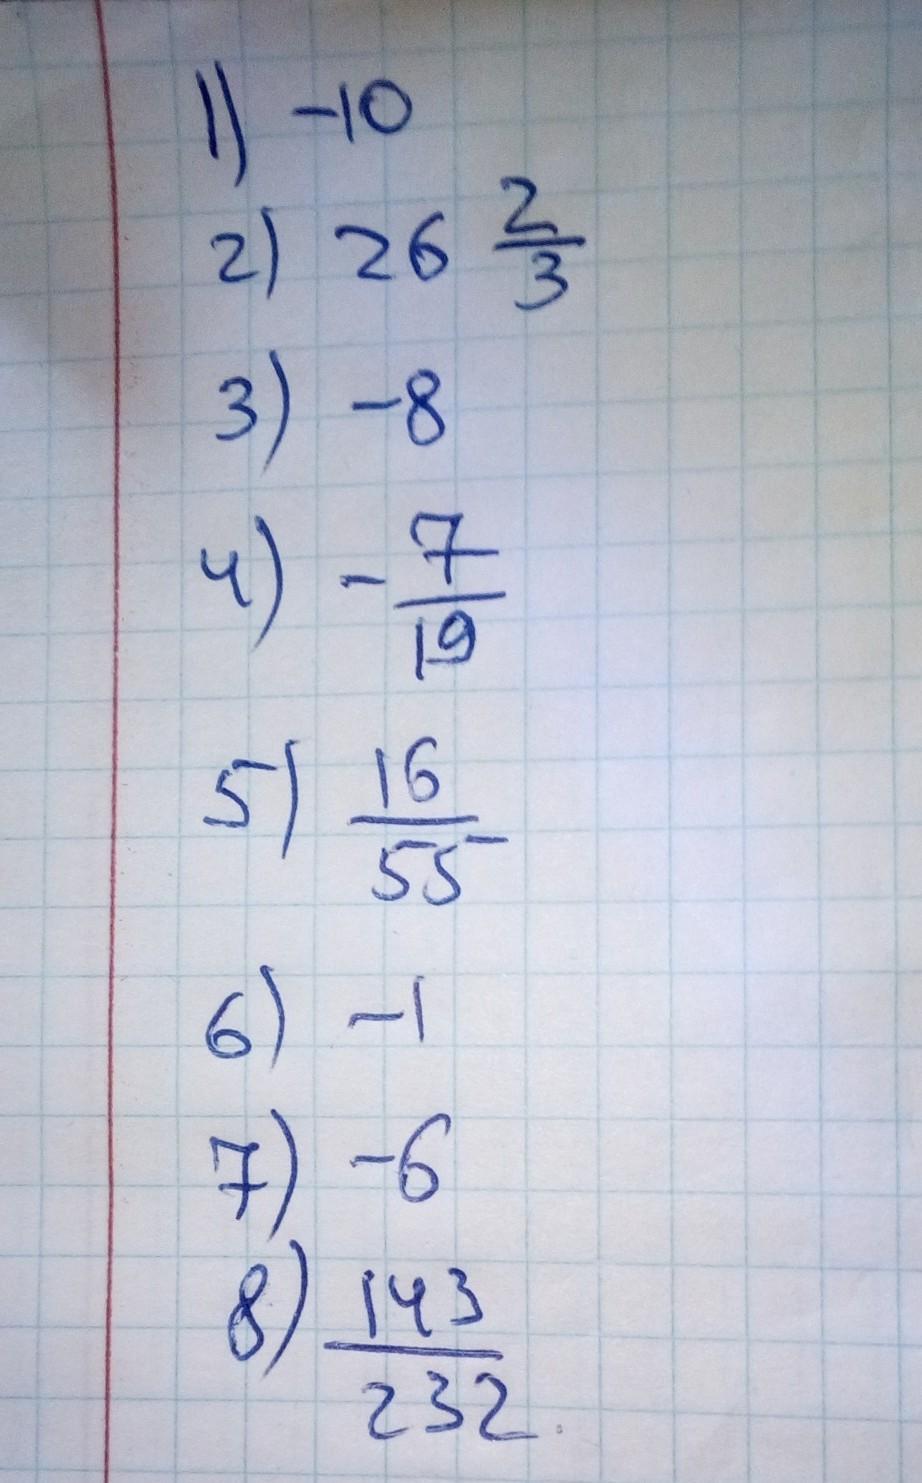 1) -10
2) 26 2/3
3) -8
4) -7/19
5) 16/55
6) -1
7) -6
8) 143/232.